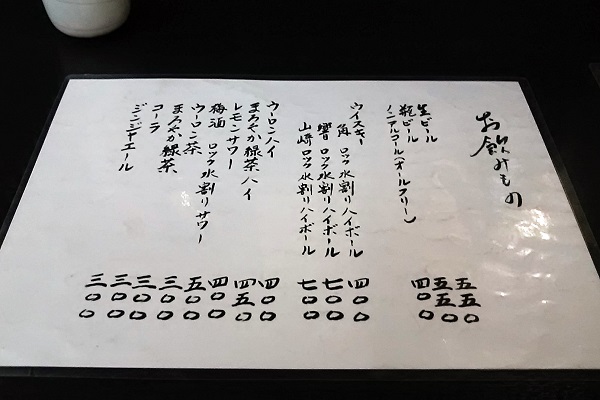 お飲みもの
生ビール 五五〇
瓶ビール 五五〇
ノンアルコール(オールフリー) 四〇〇
ウイスキー
角 ロック 水割り ハイボール 四〇〇
響 ロック 水割り ハイボール 七〇〇
山崎 ロック 水割り ハイボール 七〇〇
ウーロンハイ 四〇〇
まろやか緑茶ハイ 四五〇
レモンサワー 四〇〇
梅酒 ロック 水割り サワー 五〇〇
ウーロン茶 三〇〇
まろやか緑茶 三〇〇
コーラ 三〇〇
ジンジャエール 三〇〇